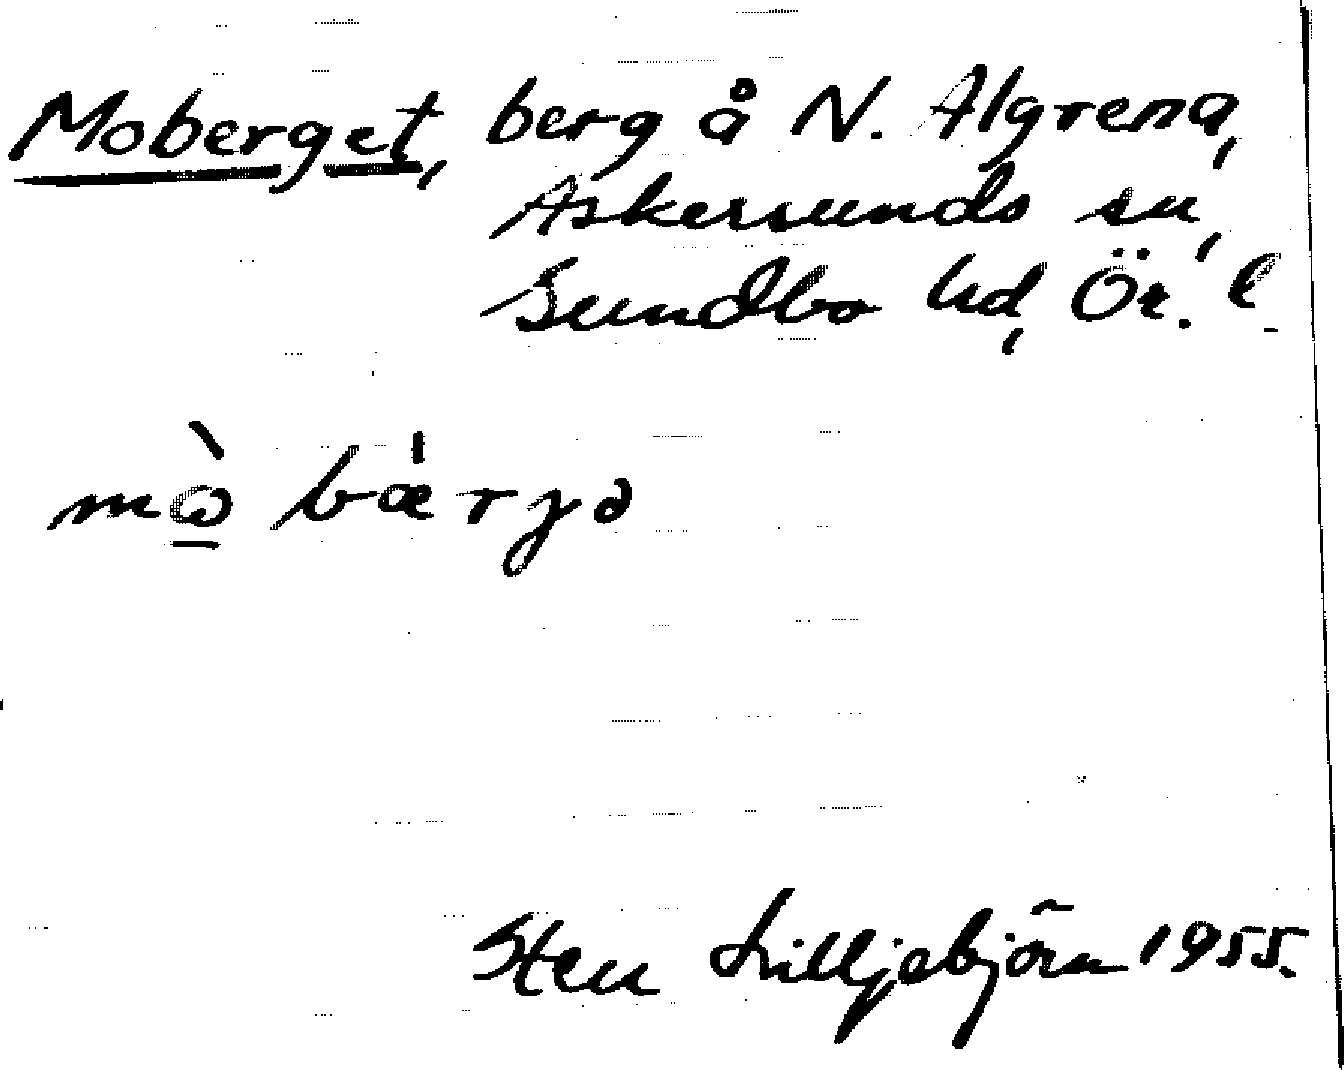 Moberget, berg å N. Algrena,
Askersunds sn,
Sundbo hd, Ör. l.
mò̠ bærjə
Sten Lilljebjörn 1955.